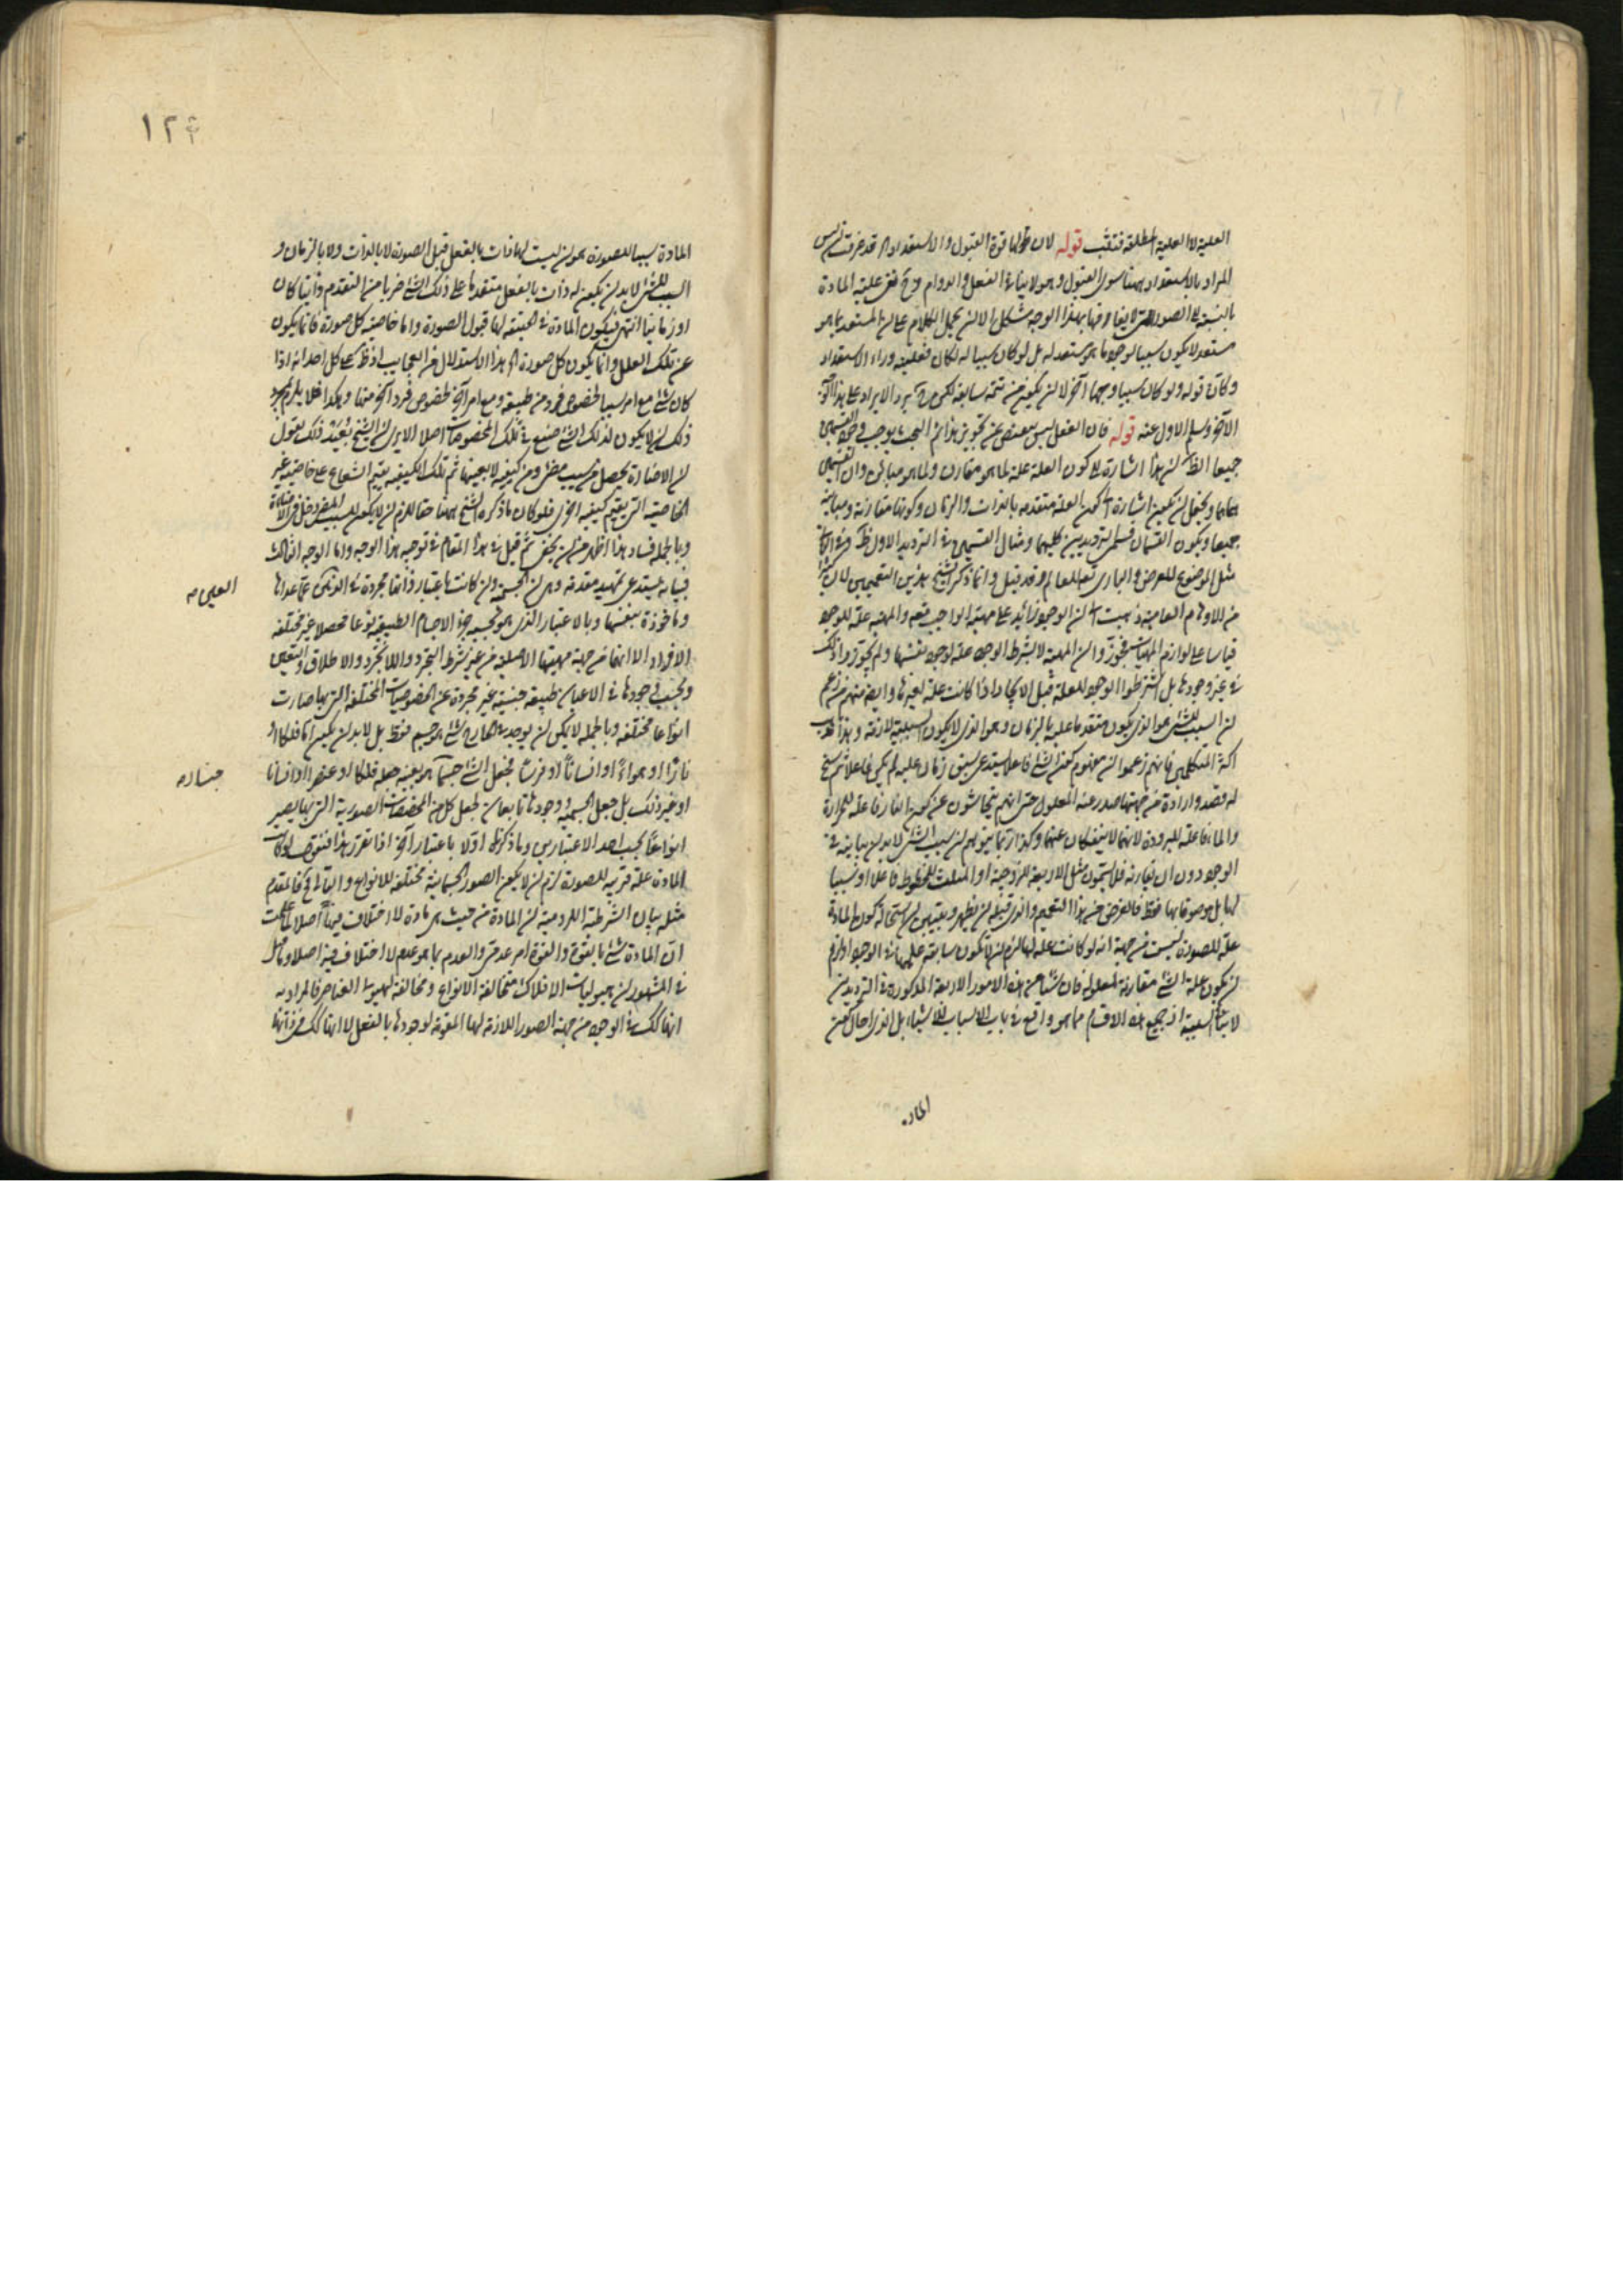 العلية لا العلية المطلقة فتثبت قوله لان لها قوة القبول والاستعداد اه قد عرفت ان ليس
المراد بالاستعداد ههنا سوى القبول وهو لا ينافى الفعل والدوام وح نفى علية المادة
بالنسبة الى الصورة التى لا يفارقها بهذا الوجه مشكل الا ان يحمل الكلام على ان المستعد بما هو
مستعد لا يكون سببا لوجود ما هو مستعد له بل لو كان سببا له لكان فعليته وراء الاستعداد
وكان قوله ولو كان سببا وجها آخر لا ان يكون من تتمة سابقه لكن ح يرد الايراد على هذا الوجه
الآخر وسلم الاول عنه قوله فان العقل ليس ينقبض عن تجويز هذا ثم البحث يوجب وجود القسمين
جميعا الظ ان هذا اشارة الى كون العلة علة لما هو مقارن ولما هو مباين وان القسمين
هما وبحتمل ان يكون اشارة الى كون العلة متقدمه بالذات والزمان وكونها مقارنة ومباينة
جميعا ويكون القسمان قسمى الترديدين كليهما ومثال القسمين فى الترديد الاول ظ وفى الثانى
مثل الموضوع للعرض والبارى تع للعالم وقد قيل وانما ذكر الشيخ هذين التعميمين لان كثيرا
من الاوهام العامية ذهبت الى ان الوجود زائد على مهية الواجب تعه والمهية علة للوجود
قياسا على لوازم المهيات فجوزوا ان المهية لا بشرط الوجود علة لوجود نفسها ولم يجوزوا ذلك
فى غير وجودها بل اشترطوا الوجود للعلة قبل الايجاد اذا كانت علة لغيرها وايضا منهم من زعم
ان السبب للشئ هو الذى يكون متقدما عليه بالزمان وهو الذى لا يكون السببية لازمة وهذا مذهب
اكثر المتكلمين فانهم زعموا ان مفهوم كون الشئ فاعلا يستدعى سبق زمان عليه لم يكن فاعلا ثم سنح
له قصد وارادة من جهتها صدر عنه المعلول حتى انهم يتحاشون عن كون النار فاعلة للحرارة
والماء فاعلة للبرودة لانهما لا ينفكان عنهما وكذا ربما يتوهم ان سبب الشئ لابد ان يباينه فى
الوجود دون ان يقارنه فلا يسمون مثل الاربعة للزوجية او المثلث للخطوط فاعلا او سببا
لها بل موصوفا بها فقط فالغرض من هذا التعميم والذى قبله ان يظهر ويتبين ان استحالة كون المادة
علة للصورة ليست من جهة انه لو كانت علة لها لزم ان لا يكون سابقة عليها فى الوجود او لزم
ان يكون علة الشئ مقارنة لمعلوله فان شيئا من هذه الامور الاربعة المذكورة فى الترديدين
لا ينافى السببية اذ جميع هذه الاقسام مما هو واقع فى باب الاسباب للاشياء بل الذى احال كون
الماده
١٢٤
المادة سببا للصورة هو ان ليست لها ذات بالفعل قبل الصورة لا بالذات ولا بالزمان و
السبب للشئ لابد ان يكون له ذات بالفعل متقدما على ذلك الشئ ضربا من التقدم ذاتيا كان
او زمانيا انتهى فيكون المادة فى الحقيقة لها قبول الصورة واما خاصية كل صورة فانما يكون
عن تلك العلل وانما يكون كل صورة اه هذا الاستدلال من العجايب اذ ظ على كل احد انه اذا
كان شئ مع امر سببا لخصوص فرد من طبيعة ومع امر آخر لخصوص فرد آخر منها وهكذا فلا يلزم بمجرد
ذلك ان لا يكون لذلك الشئ صنع فى تلك الخصوصيات اصلا الا يرى ان الشيخ بعيد ذلك يقول
ان الاضاءة يحصل من سبب مضئ ومن كيفية لا بعينها ثم تلك الكيفية يقيم الشعاع على خاصية غير
الخاصية التى يقيم كيفية اخرى فلو كان ما ذكره الشيخ ههنا حقا للزم ان لا يكون للسبب المضئ دخل فى الاضاءة
وبالجملة فساد هذا اظهر من ان يخفى ثم قيل فى هذا المقام فى توجيه هذا الوجه واما الوجه الثالث
فبيانه يستدعى تمهيد مقدمة وهى ان الجسمية وان كانت باعتبار ذاتها مجردة فى الذهن عما عداها
وماخوذة بنفسها وبالاعتبار الذى هو بحسبه جزء الاجسام الطبيعية نوعا محصلا غير مختلفه
الافراد الا انها من جهة مهيتها الاصلية من غير شرط التجرد واللاتجرد والاطلاق والتعين
وبحسب وجودها فى الاعيان طبيعة جنسية غير مجردة عن الخصوصيات المختلفة التى بها صارت
انواعا مختلفة وبالجملة لا يمكن ان يوجد فى الخارج شئ هو جسم فقط بل لابد ان يكون اما فلكا او
نارا او هواء او انسانا او فرسا فجعل الشئ جسما هو بعينه جعله فلكا او عنصرا او انسانا
او غير ذلك بل جعل الجسمية ووجودها تابعان لجعل كل من المخصصات الصورية التى بها يصير
انواعا بحسب احد الاعتبارين وما ذكرناه اولا باعتبار آخر اذا تقرر هذا فنقول لو كانت
المادة علة قريبة للصورة لزم ان لا يكون الصور الجسمانية مختلفة للانواع والتالى مح فالمقدم
مثله بيان الشرطية اللزومية ان المادة من حيث هى مادة لا اختلاف فيها اصلا لما علمت
ان المادة شئ بالقوة والقوة امر عدمى والعدم بما هو عدم لا اختلاف فيه اصلا وما قيل
فى المشهور ان هيوليات الافلاك متخالفة الانواع ومخالفة لهيولى العناصر فالمراد به
انها كك فى الوجود من جهة الصور اللازمة لها المقومة لوجودها بالفعل لا انها كك فى ذاتها